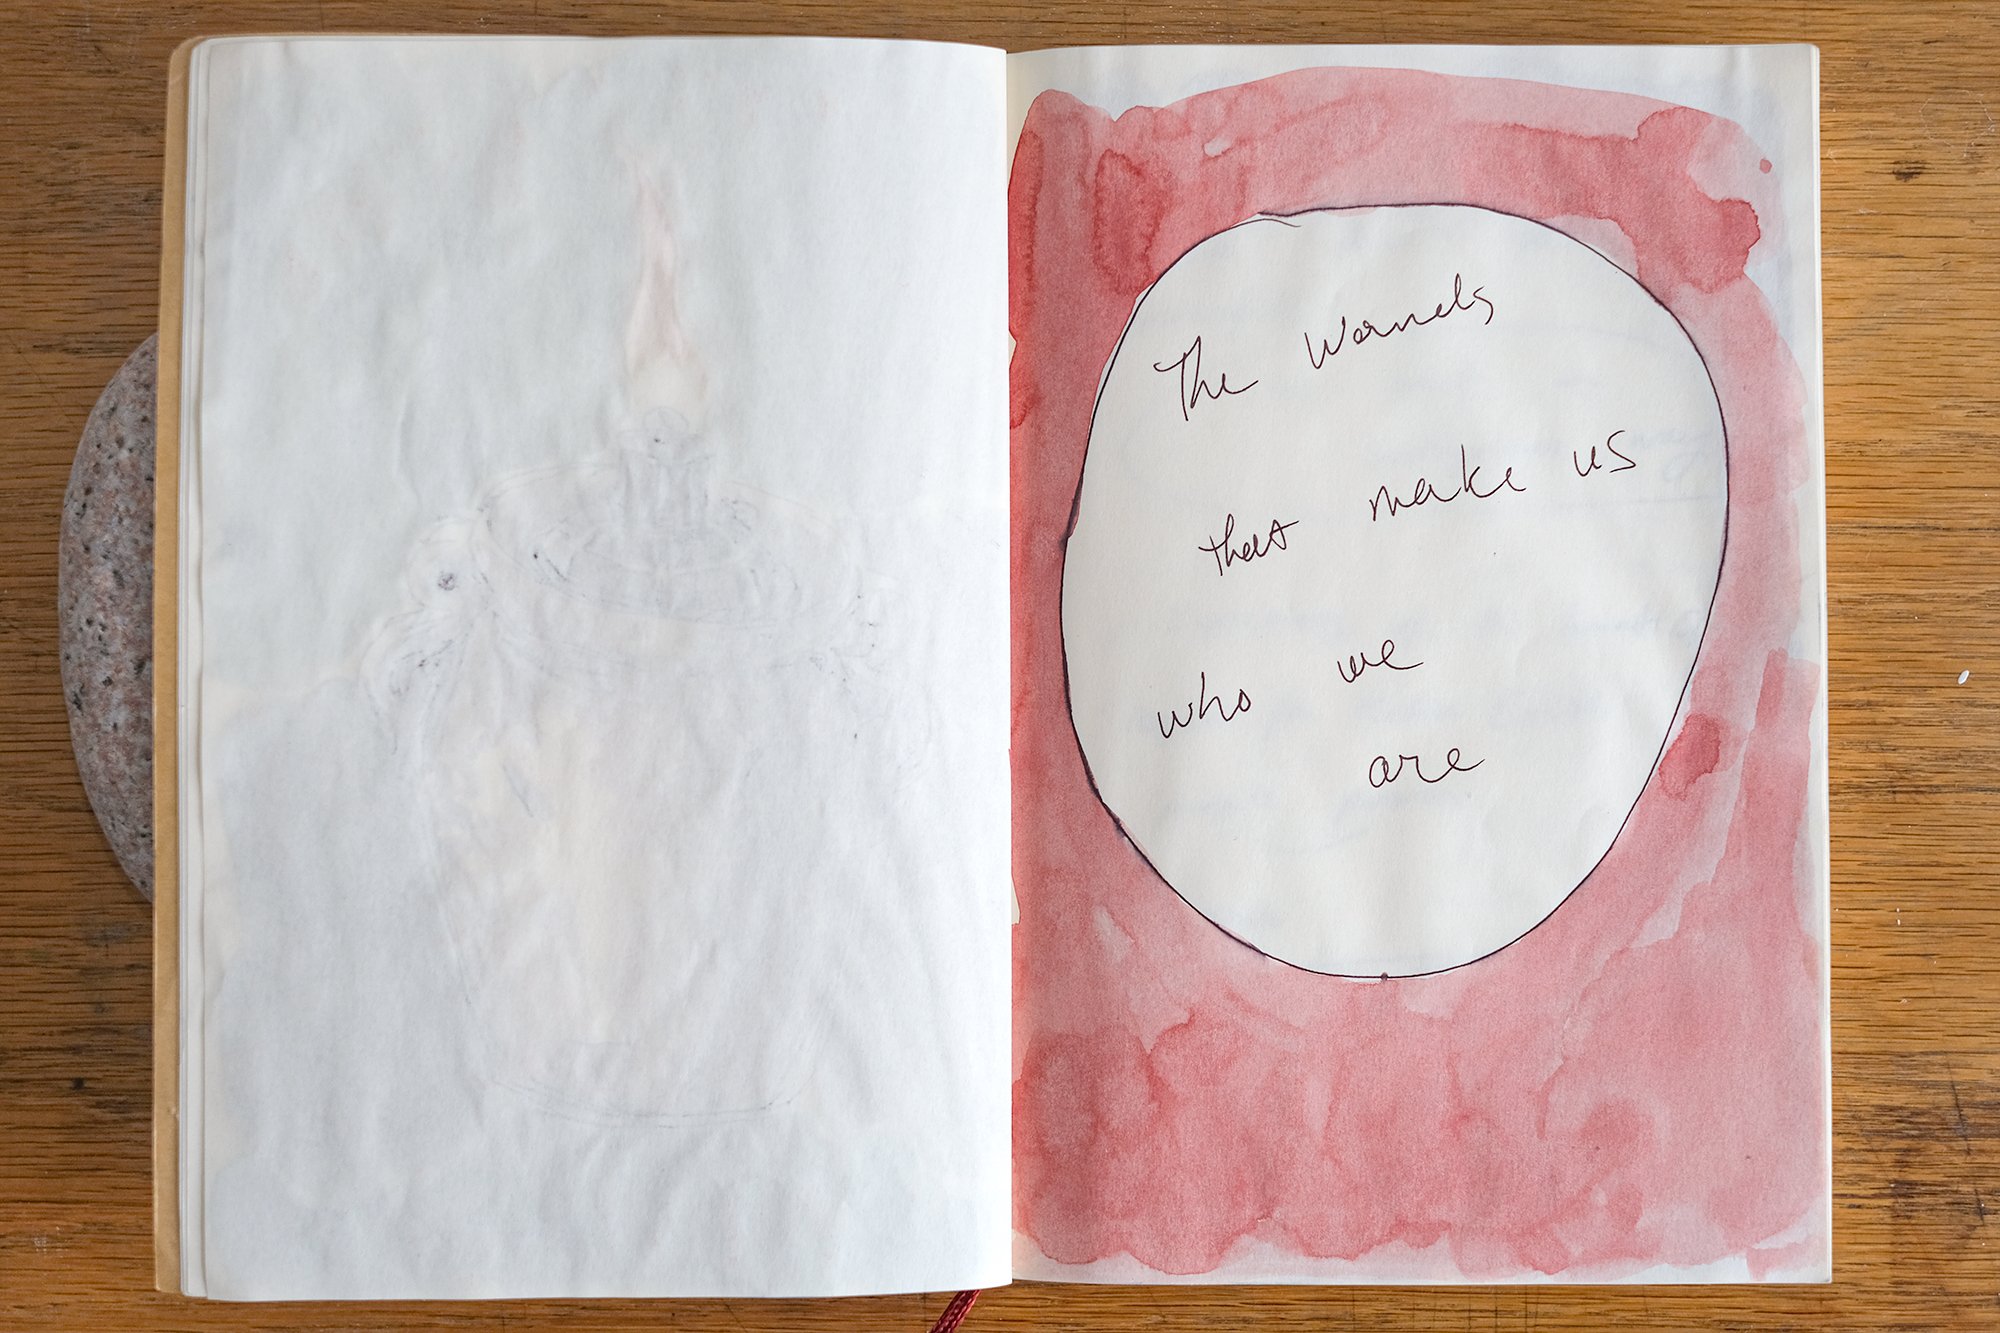 The wounds
that make us
who we
are